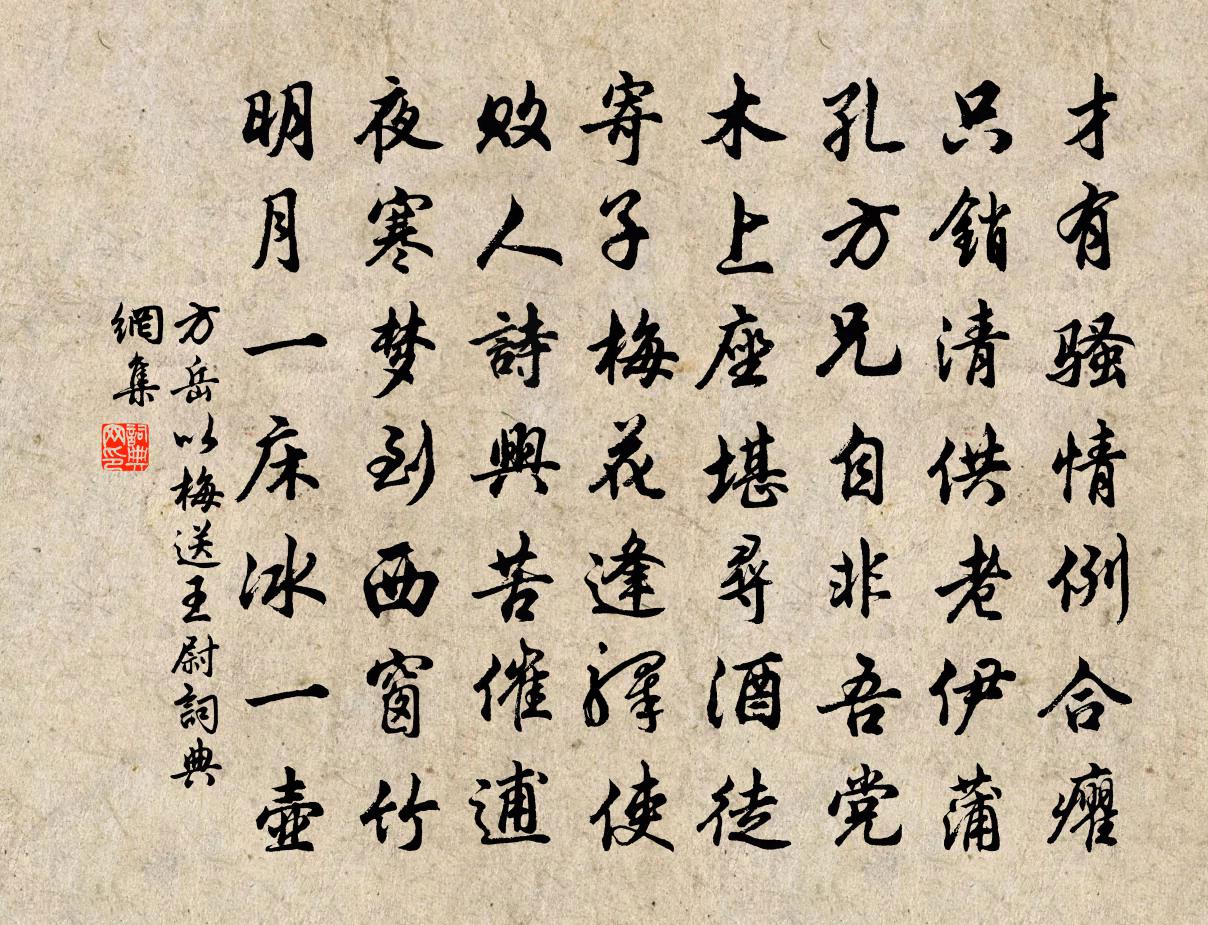 才有騷情例合癯
只銷清供老伊蒲
孔方兄自非吾党
木上座堪尋酒徒
寄子梅花逢驛使
敗人詩興苦催逋
夜寒梦到西窗竹
明月一床冰一壺
方岳以梅送王尉詞典
網集
詞典
网印